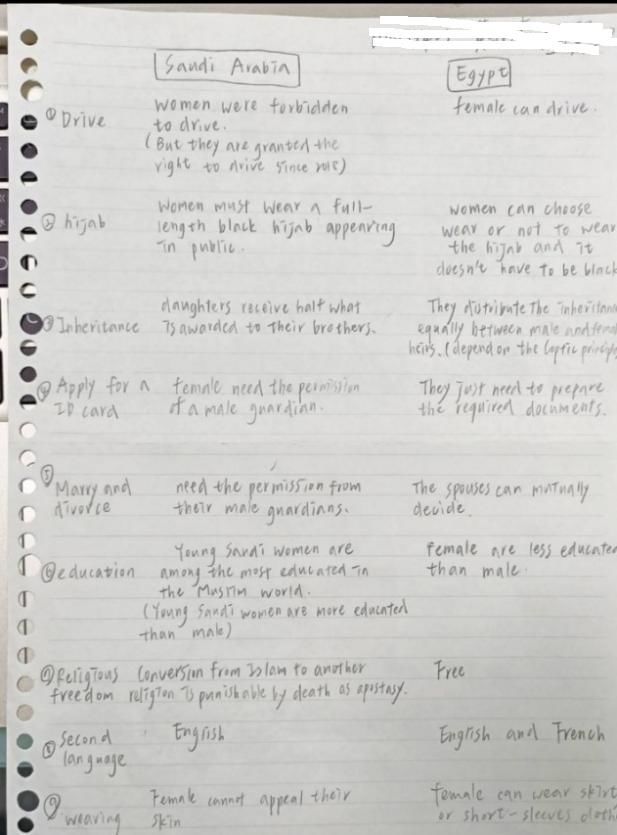 Saudi Arabia
Egypt
① Drive
Women were forbidden
to drive.
(But they are granted the
right to drive since 2018)
female can drive.
② hijab
Women must wear a full-
length black hijab appearing
in public.
women can choose
wear or not to wear
the hijab and it
doesn't have to be black
③ Inheritance
daughters receive half what
is awarded to their brothers.
They distribute the inheritan
equally between male and fema
heirs. (depend on the Coptic principle
④ Apply for a
ID card
female need the permission
of a male guardian.
They just need to prepare
the required documents.
⑤ Marry and
divorce
need the permission from
their male guardians.
The spouses can mutually
decide.
⑥ education
Young Saudi women are
among the most educated in
the Muslim world.
(Young Saudi women are more educated
than male)
female are less educated
than male.
⑦ Religious
freedom
Conversion from Islam to another
religion is punishable by death as apostasy.
Free
⑧ Second
language
English
English and French
⑨ wearing
Female cannot appeal their
skin
female can wear skirt
or short-sleeves cloth